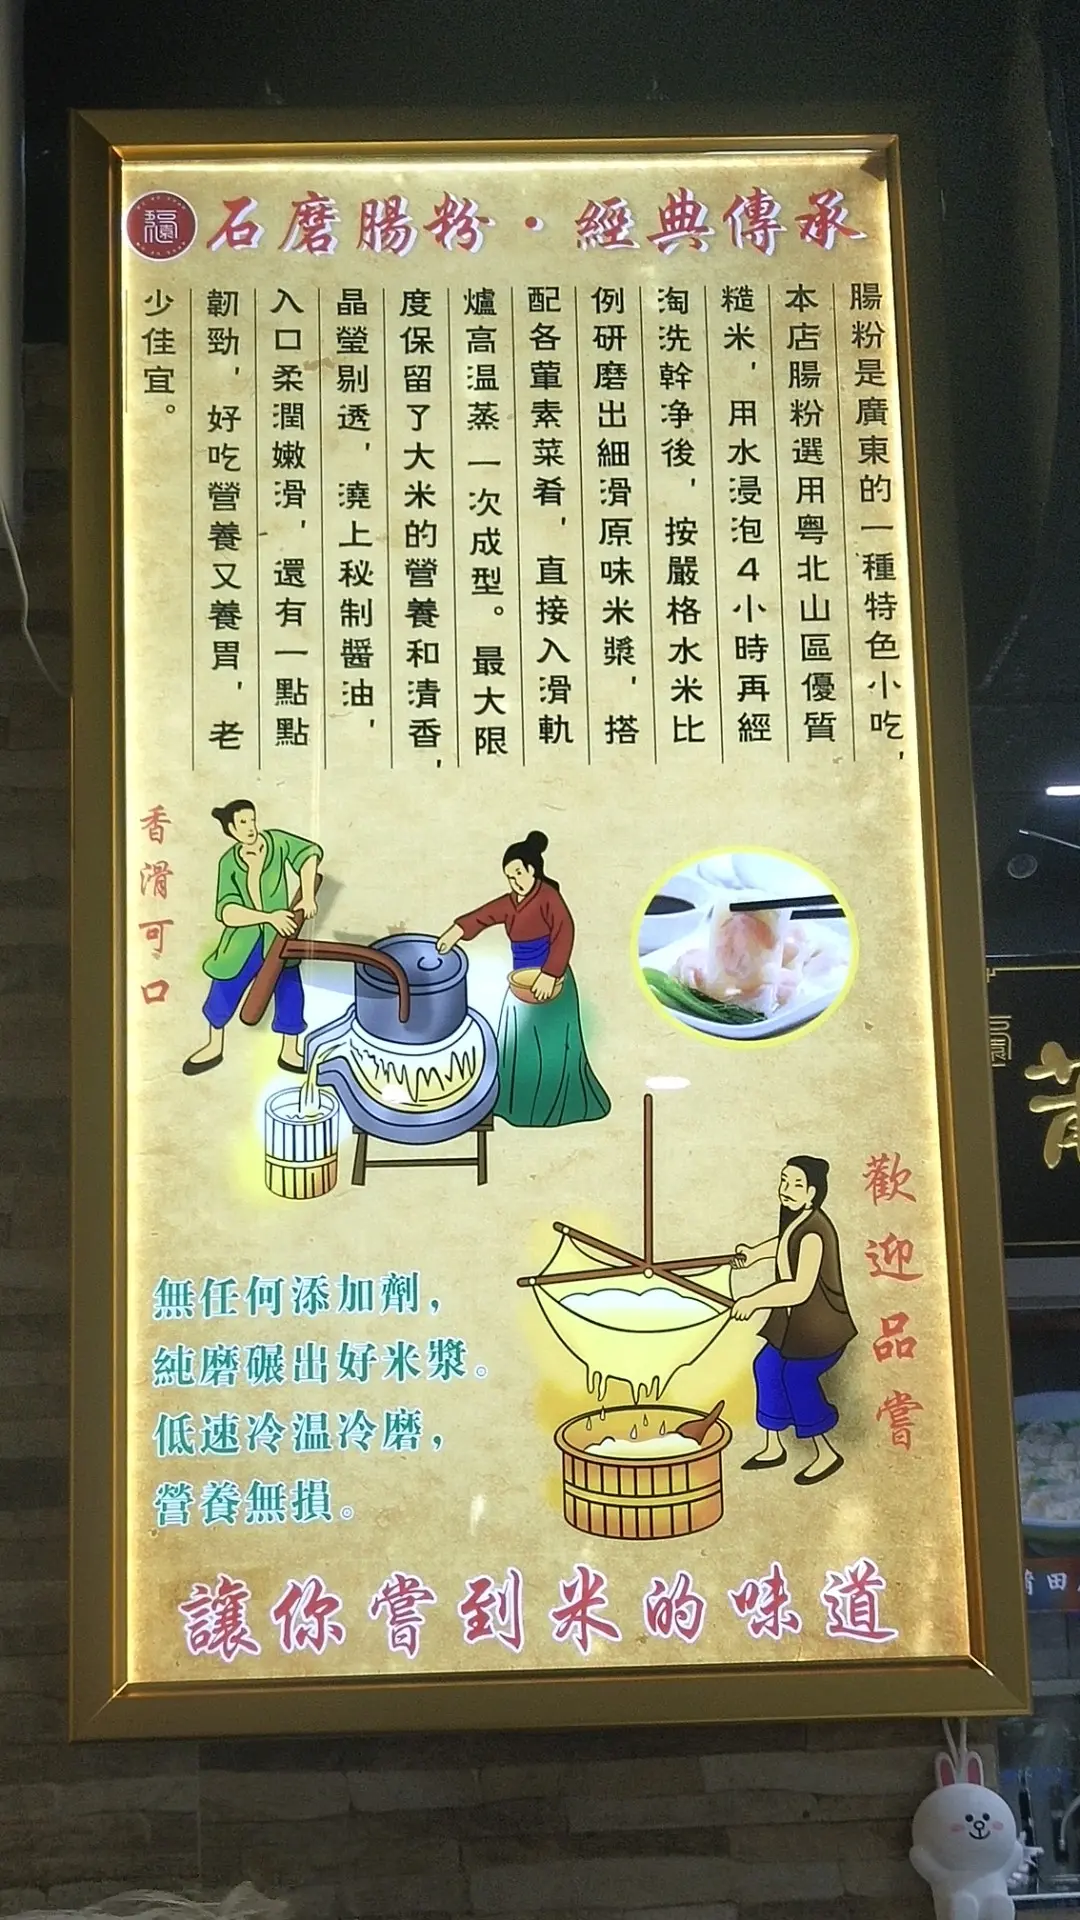 石磨腸粉·經典傳承
腸粉是廣東的一種特色小吃，
本店腸粉選用粤北山區優質
糙米，用水浸泡4小時再經
淘洗幹净後，按嚴格水米比
例研磨出細滑原味米漿，搭
配各葷素菜肴，直接入滑軌
爐高温蒸一次成型。最大限
度保留了大米的營養和清香，
晶瑩剔透，澆上秘制醬油，
入口柔潤嫩滑，還有一點點
韌勁，好吃營養又養胃，老
少佳宜。
香滑可口
歡迎品嘗
無任何添加劑，
純磨碾出好米漿。
低速冷温冷磨，
營養無損。
讓你嘗到米的味道
莆
莆田